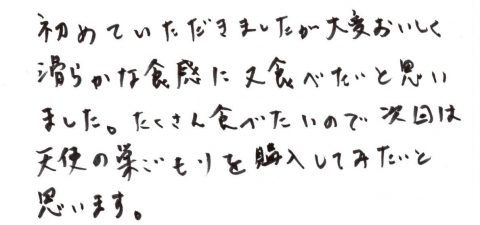 初めていただきましたが大変おいしく
滑らかな食感に又食べたいと思い
ました。たくさん食べたいので次回は
天使の巣ごもりを購入してみたいと
思います。